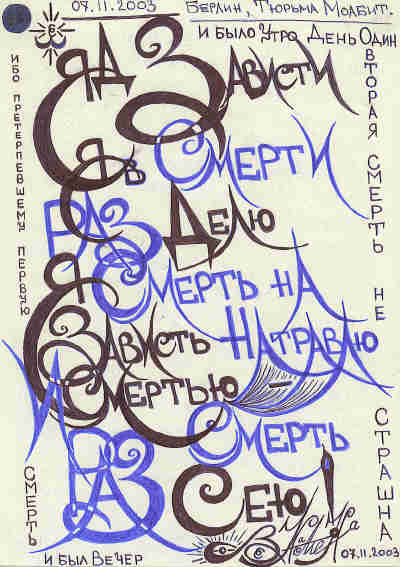 07.11.2003 Берлин, Тюрьма Моабит.
И было Утро День Один
Яд Зависти
Я в Смерти
Раз Делю
Я Смерть на
Зависть Натравлю
Смертью –
И Смерть
Раз Сею!
И был Вечер
07.11.2003
Ибо претерпевшему первую
Смерть
Вторая Смерть не
Страшна